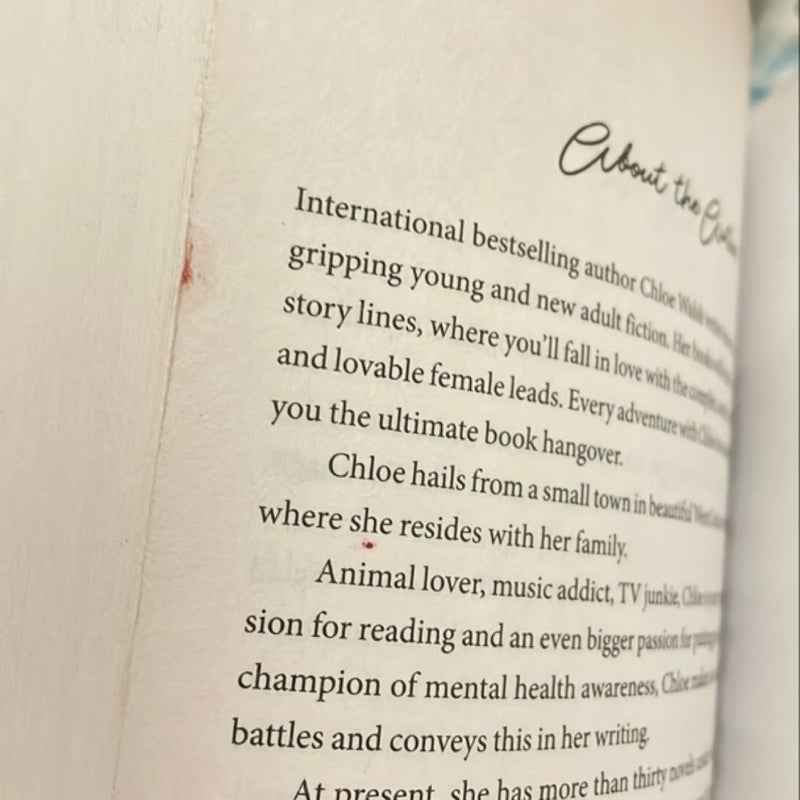 About the
International bestselling author Chloe Walsh
gripping young and new adult fiction. Her books
story lines, where you'll fall in love with the complex
and lovable female leads. Every adventure with Chloe
you the ultimate book hangover.
Chloe hails from a small town in beautiful West
where she resides with her family.
Animal lover, music addict, TV junkie, Chloe
sion for reading and an even bigger passion for
champion of mental health awareness, Chloe makes
battles and conveys this in her writing.
At present, she has more than thirty novels